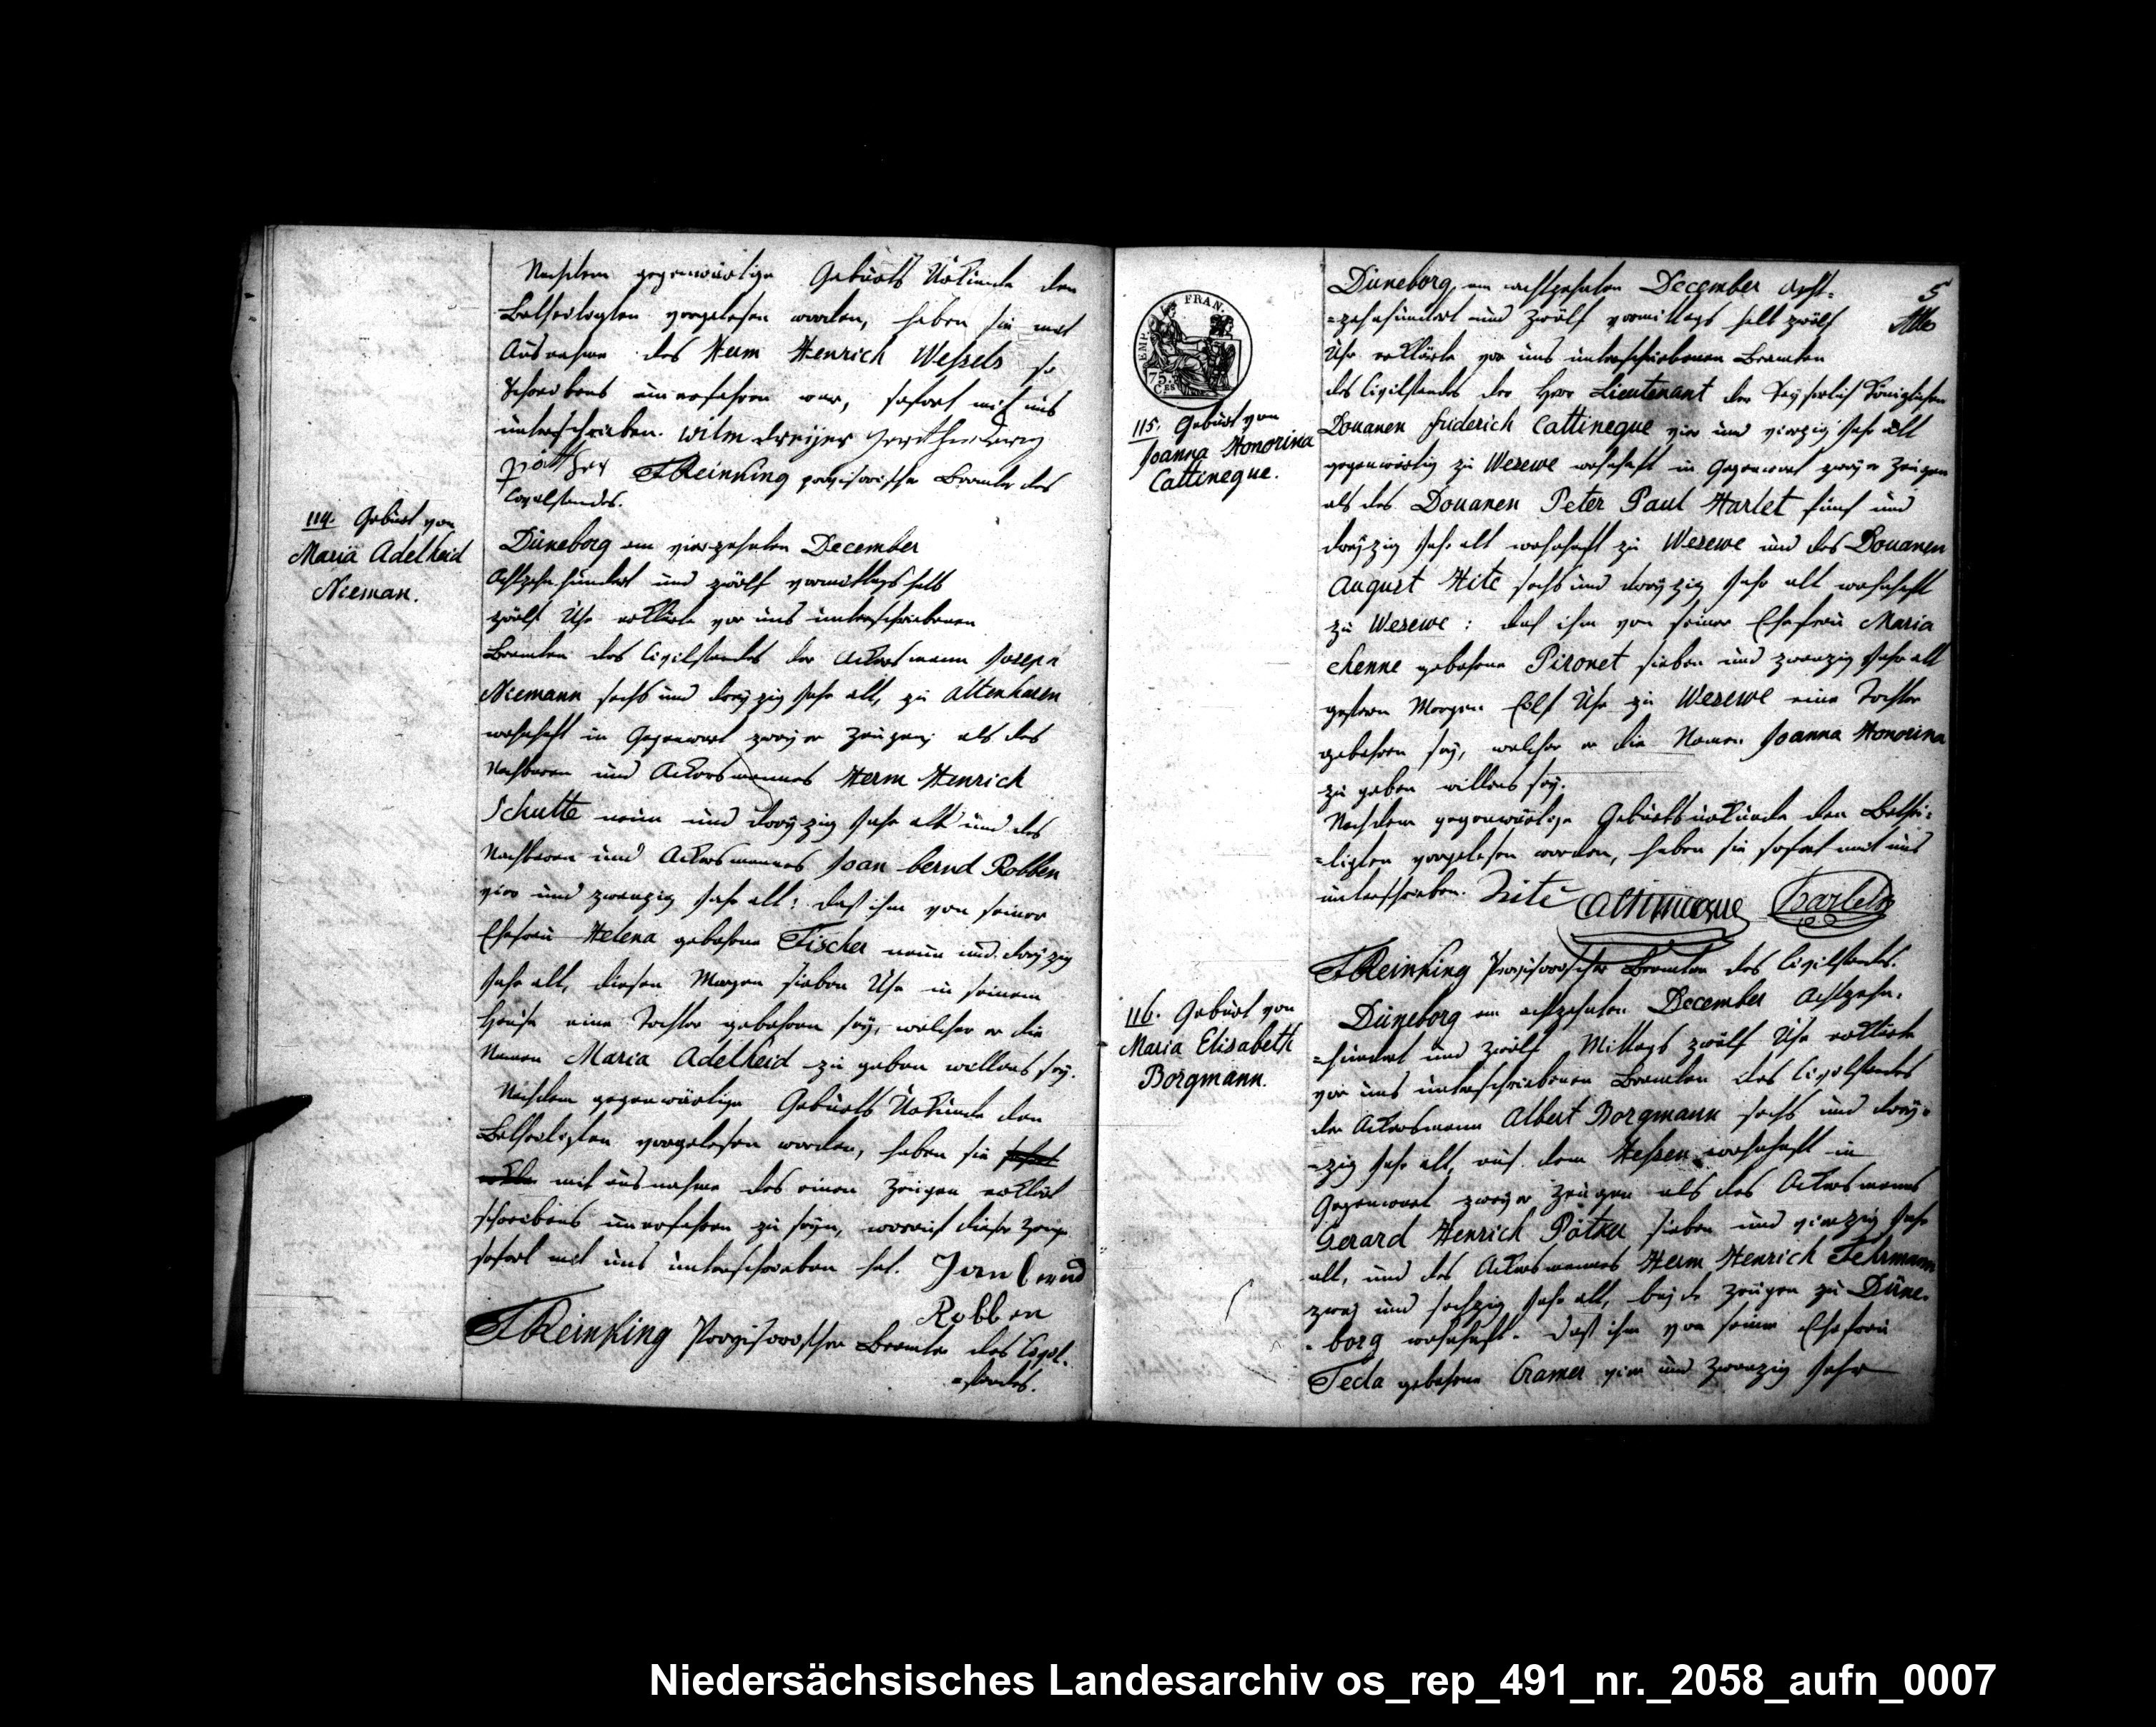 Nachdem gegenwärtige Geburts Urkunde den
Betheiligten vorgelesen worden, haben sie mit
Ausnahme des Herm Henrich Weßels so
Schreibens unerfahren war, sofort mit uns
unterschrieben. Wilm dreijer
FReinking provisorischer Beamter des
Civilstandes.
114. Geburt von
Maria Adelheid
Nieman.
Düneborg am vierzehnten December
Achtzehnhundert und zwölf vormittags halb
zwölf Uhr erklärte vor uns unterschriebenen
Beamten des Civilstandes der Ackersmann Joseph
Niemann sechs und dreyzig Jahr alt, zu Altenharen
wohnhaft in Gegenwart zweyer Zeugen als des
Nachbaren und Ackersmannes Herm Henrich
Schulte neun und dreyzig Jahr alt und des
Nachbaren und Ackersmannes Joan bernd Robben
vier und zwanzig Jahr alt: daß ihm von seiner
Ehefrau Helena gebohrne Fischer neun und dreyzig
Jahr alt, diesen Morgen sieben Uhr in seinem
Hause eine Tochter gebohren sey, welcher er die
Namen Maria Adelheid zu geben willens sey.
Nachdem gegenwärtige Geburts Urkunde den
Betheiligten vorgelesen worden, haben sie sofort
mit ausnahme des einen Zeugen erklärt
schreibens unerfahren zu seyn, worauf dieser Zeuge
sofort mit uns unterschrieben hat. Jan bernd
Robben
FReinking Provisorischer Beamter des Civil-
=standes.
EMP. FRAN.
75.
CES
5
115. Geburt von
Joanna Honorina
Cattineque.
Düneborg, am achtzehnten December Acht=
=zehnhundert und zwölf vormittags halb zwölf
Uhr erklärte vor uns unterschriebenen Beamten
des Civilstandes der Herr Lieutenant der Kayserlich Königlichen
Douanen Friderich Cattineque vier und vierzig Jahr alt
gegenwärtig zu Wesewe wohnhaft in Gegenwart zweyer Zeugen
als des Douanen Peter Paul Harlet fünf und
dreyzig Jahr alt wohnhaft zu Wesewe und des Douanen
August Hite sechs und dreyzig Jahr alt wohnhaft
zu Wesewe: daß ihm von seiner Ehefrau Maria
chenne gebohrne Pironet sieben und zwanzig Jahr alt
gestern Morgen Eilf Uhr zu Wesewe eine Tochter
gebohren sey, welcher er die Namen Joanna Honorina
zu geben willens sey.
Nachdem gegenwärtige Geburtsurkunde den Bethei=
=ligten vorgelesen worden, haben sie sofort mit uns
unterschrieben. hite Cattineque harlet
FReinking Provisorischer Beamten des Civilstandes.
116. Geburt von
Maria Elisabeth
Borgmann.
Düneborg am achtzehnten December Achtzehn=
=hundert und zwölf Mittags zwölf Uhr erklärte
vor uns unterschriebenen Beamten des Civilstandes
der Ackersmann Albert Borgmann sechs und drey=
=zig Jahr alt, auf dem Heßen wohnhaft in
Gegenwart zweyer Zeugen als des Ackersmanns
Gerard Henrich Pötker sieben und vierzig Jahr
alt, und des Ackersmannes Herm Henrich Fehrmann
zwey und sechzig Jahr alt, beyde Zeugen zu Düne=
=borg wohnhaft. Daß ihm von seiner Ehefrau
Tecla gebohrne Cramer vier und zwanzig Jahr
Niedersächsisches Landesarchiv os_rep_491_nr._2058_aufn_0007